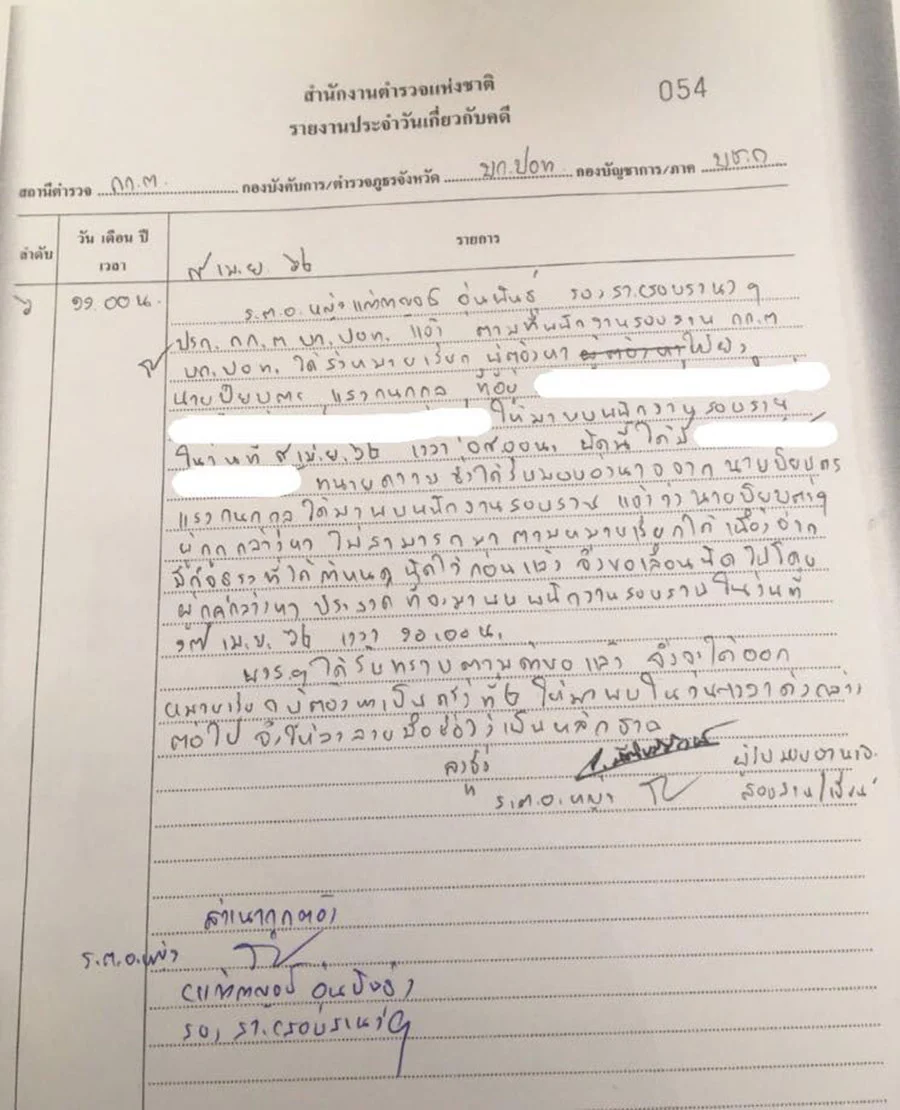 สำนักงานตำรวจแห่งชาติ
054
รายงานประจำวันเกี่ยวกับคดี
สถานีตำรวจ กก.๓. กองบังคับการ/ตำรวจภูธรจังหวัด บก.ปอท. กองบัญชาการ/ภาค บช.ก
ลำดับ วัน เดือน ปี เวลา รายการ
๙ เม.ย. ๖๒
๖ ๑๑.๐๐ น. ร.ต.อ.หญิง อุ่นพันธุ์ รอง สว.(สอบสวน)ฯ
ปรก. กก.๓ บก.ปอท. แจ้ง ตามที่พนักงานสอบสวน กก.๓
บก.ปอท. ได้ หมายเรียก ผู้ต้องหา ไปยัง
นายปิยบุตร แสงกนกกุล ที่อยู่
ให้มาพบพนักงานสอบสวน
ในวันที่ ๙ เม.ย. ๖๒ เวลา ๐๙.๐๐ น. นัดนี้ ได้มี
ทนายความ ซึ่งได้รับมอบอำนาจจาก นายปิยบุตร
แสงกนกกุล ได้มาพบพนักงานสอบสวน แจ้งว่า นายปิยบุตรฯ
ผู้ถูกกล่าวหา ไม่สามารถมา ตามหมายเรียกได้ เนื่องจาก
มีกิจธุระที่ได้กำหนดนัดไว้ก่อนแล้ว จึงขอเลื่อนนัดไปโดย
ผู้ถูกกล่าวหา ประสงค์ที่จะมาพบพนักงานสอบสวนในวันที่
๑๗ เม.ย. ๖๒ เวลา ๑๐.๐๐ น.
พงส.ฯ ได้รับทราบตามคำขอแล้ว จึงจะได้ออก
หมายเรียกผู้ต้องหาเป็นครั้งที่ ๒ ให้มาพบในวันเวลาดังกล่าว
ต่อไป จึงให้ลงลายมือชื่อไว้เป็นหลักฐาน
ลงชื่อ ผู้รับมอบอำนาจ
ร.ต.อ.หญิง สอบสวน/เขียน
สำเนาถูกต้อง
ร.ต.อ.หญิง
รอง สว.(สอบสวน)ฯ